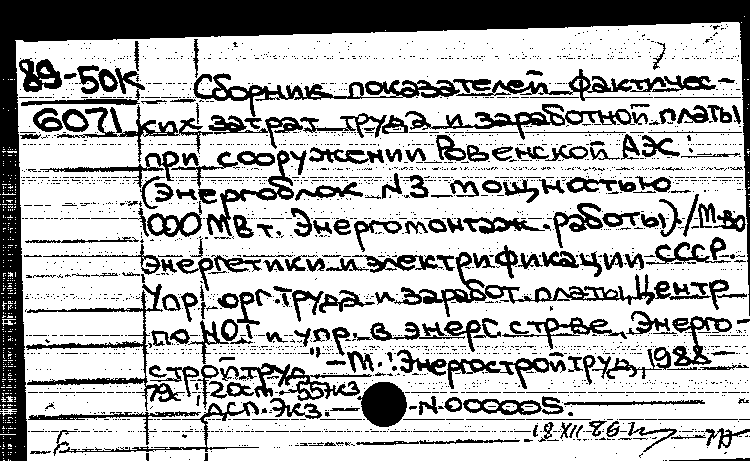 89-50к
6071
Сборник показателей фактичес-
ких затрат труда и заработной платы
при сооружении Ровенской АЭС:
(Энергоблок N3 мощностью
1000 МВт. Энергомонтаж. работы)./М-во
энергетики и электрификации СССР.
Упр. орг. труда и заработ. платы, Центр
по НОТ и упр. в энерг. стр-ве „Энерго-
стройтруд". – М.: Энергостройтруд, 1988 –
79с.; 20см. 55экз
ДСП. Экз. – N-000005.
18 XII 86 г